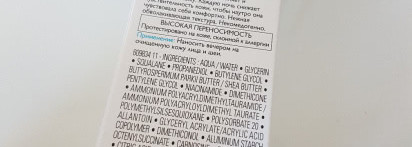 чувствительной кожи. Каждую ночь снимает
беспокойство кожи, чтобы наутро она
чувствовала себя комфортно. Нежная
обволакивающая текстура. Некомедогенно.
ВЫСОКАЯ ПЕРЕНОСИМОСТЬ
Протестировано на коже, склонной к аллергии
Применение: Наносить вечером на
очищенную кожу лица и шеи.
609804 11 - INGREDIENTS : AQUA / WATER • GLYCERIN
• SQUALANE • PROPANEDIOL • BUTYLENE GLYCOL •
BUTYROSPERMUM PARKII BUTTER / SHEA BUTTER •
PENTYLENE GLYCOL • NIACINAMIDE • DIMETHICONE
• AMMONIUM POLYACRYLDIMETHYLTAURAMIDE /
AMMONIUM POLYACRYLOYLDIMETHYL TAURATE •
POLYMETHYLSILSESQUIOXANE • POLYSORBATE 20
• ALLANTOIN • GLYCERYL ACRYLATE/ACRYLIC ACID
COPOLYMER • DIMETHICONOL • ALUMINUM STARCH
OCTENYLSUCCINATE • CARNOSINE
CITRIC ACID